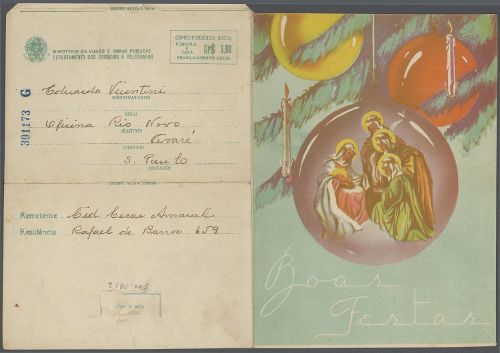 DOBRE NESTA LINHA
MINISTERIO DA VIAÇÃO E OBRAS PUBLICAS
DEPARTAMENTO DOS CORREIOS E TELEGRAFOS
CORRESPONDENCIA-SOCIAL
FÓRMULA E TAXA
Cr$ 3,00
FRANQUIAMENTO LOCAL
391173 G
Eduardo Vicentini
(DESTINATARIO)
(RUA)
Oficina Rio Novo
(BAIRRO)
Avaré
(CIDADE)
S. Paulo
(ESTADO)
DOBRE NESTA LINHA
Remetente Cid Cesar Amaral
Residência Rafael de Barros 659
Boas
Festas